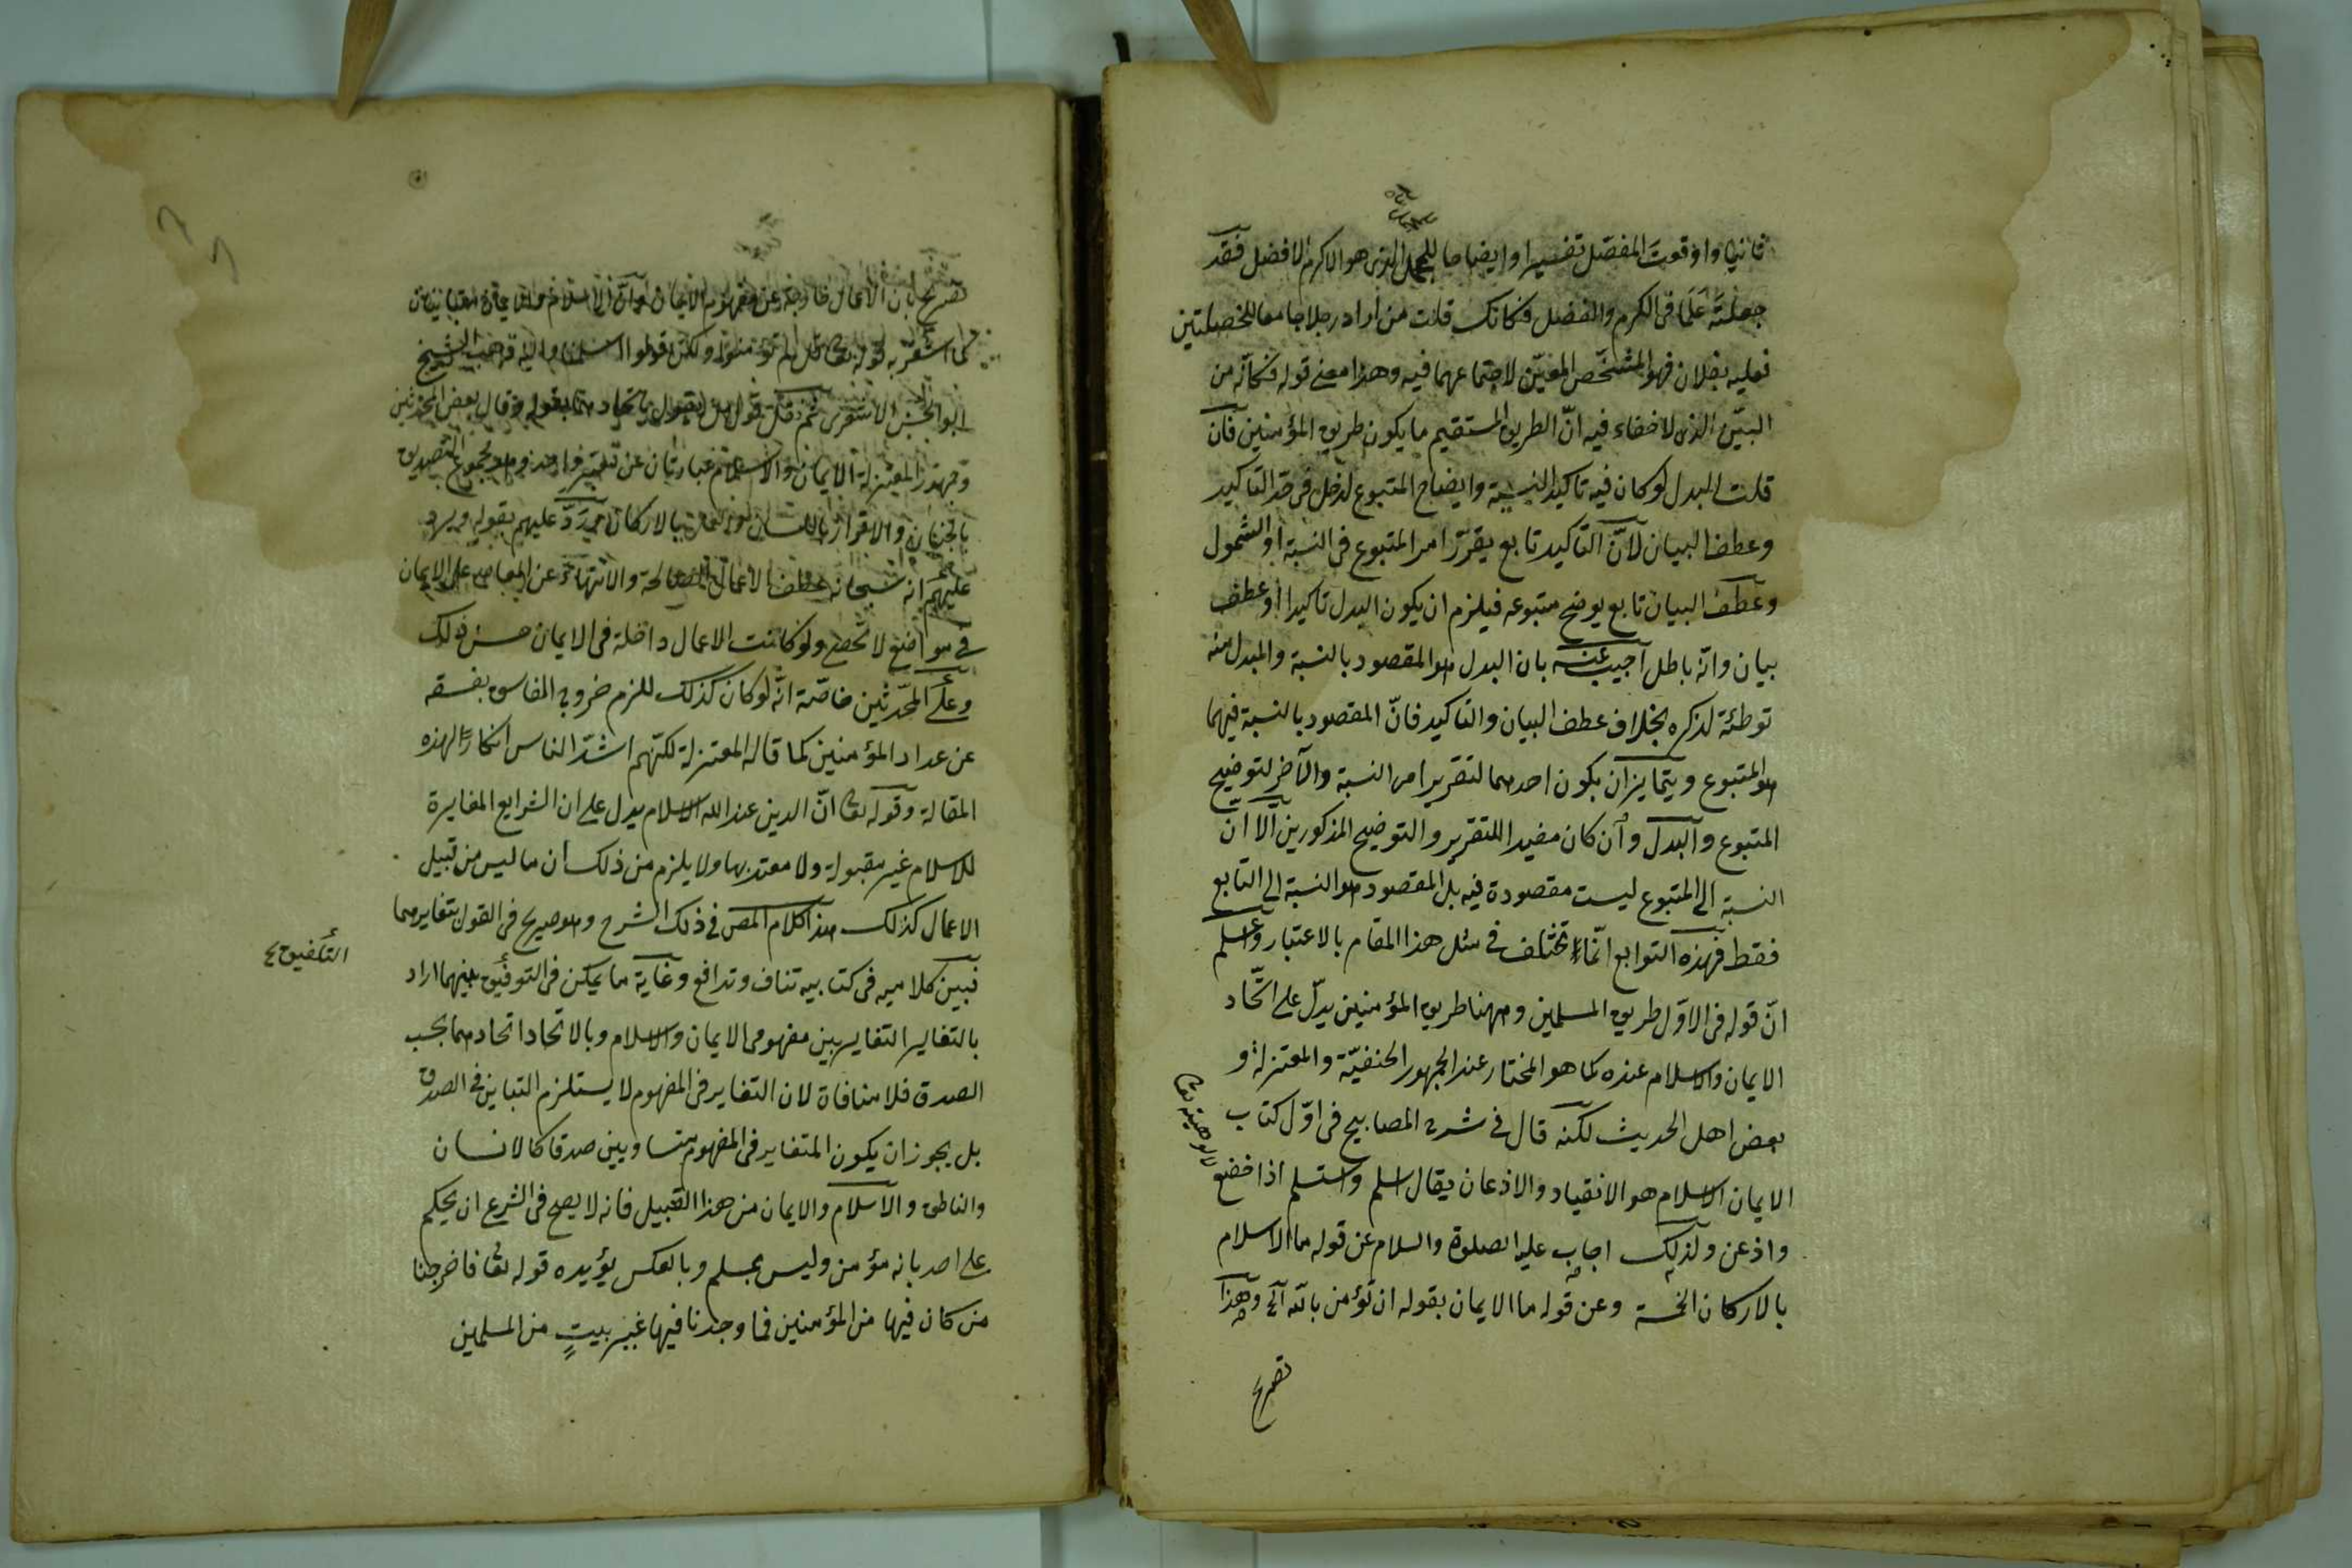 ثانيا واوقوت المفصل تفسيرا وايضاحا للمجمل الذى هو الاكرم الافضل فقد
جعلته علما فى الكرم والفضل فكانك قلت من اراد رجلا جامعا للخصلتين
فعليه بفلان فهو المشخّص المعيّن لاجتماعهما فيه وهذا معنى قوله فكانّه من
البيّن الذى لاخفاء فيه انّ الطريق المستقيم ما يكون طريق المؤمنين فان
قلت البدل لو كان فيه تاكيد النسبة وايضاح المتبوع لدخل فى حد التاكيد
وعطف البيان لانّ التاكيد تابع يقرّر امر المتبوع فى النسبة او الشمول
وعطف البيان تابع يوضح متبوعه فيلزم ان يكون البدل تاكيدا او عطف
بيان وانّه باطل اجيب عنه بان البدل هو المقصود بالنسبة والمبدل منه
توطئة لذكره بخلاف عطف البيان والتاكيد فانّ المقصود بالنسبة فيهما
هو المتبوع ويتمايزان بكون احدهما لتقرير امر النسبة والآخر لتوضيح
المتبوع والبدل وان كان مفيدا للتقرير والتوضيح المذكورين الا ان
النسبة الى المتبوع ليست مقصودة فيه بل المقصود هو النسبة الى التابع
فقط فهذه التوابع انّما تختلف فى مثل هذا المقام بالاعتبار واعلم
انّ قوله فى الاوّل طريق المسلمين وههنا طريق المؤمنين يدلّ على اتّحاد
الايمان والاسلام عنده كما هو المختار عند الجمهور الحنفيّة والمعتزلة و
بعض اهل الحديث لكنه قال فى شرح المصابيح فى اوّل كتاب
الايمان الاسلام هو الانقياد والاذعان يقال اسلم واستسلم اذا خضع
واذعن ولذلك اجاب عليه الصلوة والسلام عن قوله ما الاسلام
بالاركان الخمسة وعن قوله ما الايمان بقوله ان تؤمن بالله آلخ وهذا
تصريح
تصريح بان الاعمال خارجة عن مفهوم الايمان وانّ الاسلام والايمان متباينان
كما اشعر به قوله تعالى قل لم تؤمنوا ولكن قولوا اسلمنا واليه ذهب الشيخ
ابو الحسن الاشعرى ثم نقل قول من يقول باتحادهما بقوله وقال بعض المحدثين
وجمهور المعتزلة الايمان والاسلام عبارتان عن معبر واحد وهو مجموع التصديق
بالجنان والاقرار باللسان والعمل بالاركان ثم ردّ عليهم بقوله ويرد
عليهم انه سبحانه عطف الاعمال الصالحة والانتهاء عن المعاصى على الايمان
فى مواضع لا تحصى ولو كانت الاعمال داخلة فى الايمان حسن ذلك
وعلى المحدّثين خاصّة انّه لو كان كذلك للزم خروج الفاسق بفسقه
عن عداد المؤمنين كما قاله المعتزلة لكنهم اشدّ الناس انكارًا لهذه
المقالة وقوله تعالى انّ الدين عند الله الاسلام يدل على ان الشرايع المغايرة
للاسلام غير مقبولة ولا معتد بها ولا يلزم من ذلك ان ما ليس من قبيل
الاعمال كذلك هذا كلام المص فى ذلك الشرح وهو صريح فى القول بتغايرهما
فبين كلاميه فى كتابيه تناف وتدافع وغاية ما يمكن فى التوفيق بينهما اراد
التلفيق
بالتغاير التغاير بين مفهومى الايمان والاسلام وبالاتحاد اتحادهما بحسب
الصدق فلا منافاة لان التغاير فى المفهوم لا يستلزم التباين فى الصدق
بل يجوز ان يكون المتغاير فى المفهوم متساويين صدقا كالانسان
والناطق والاسلام والايمان من هذا القبيل فانه لا يصح فى الشرع ان يحكم
على احد بانه مؤمن وليس بمسلم وبالعكس يؤيده قوله تعالى فاخرجنا
من كان فيها من المؤمنين فما وجدنا فيها غير بيتٍ من المسلمين